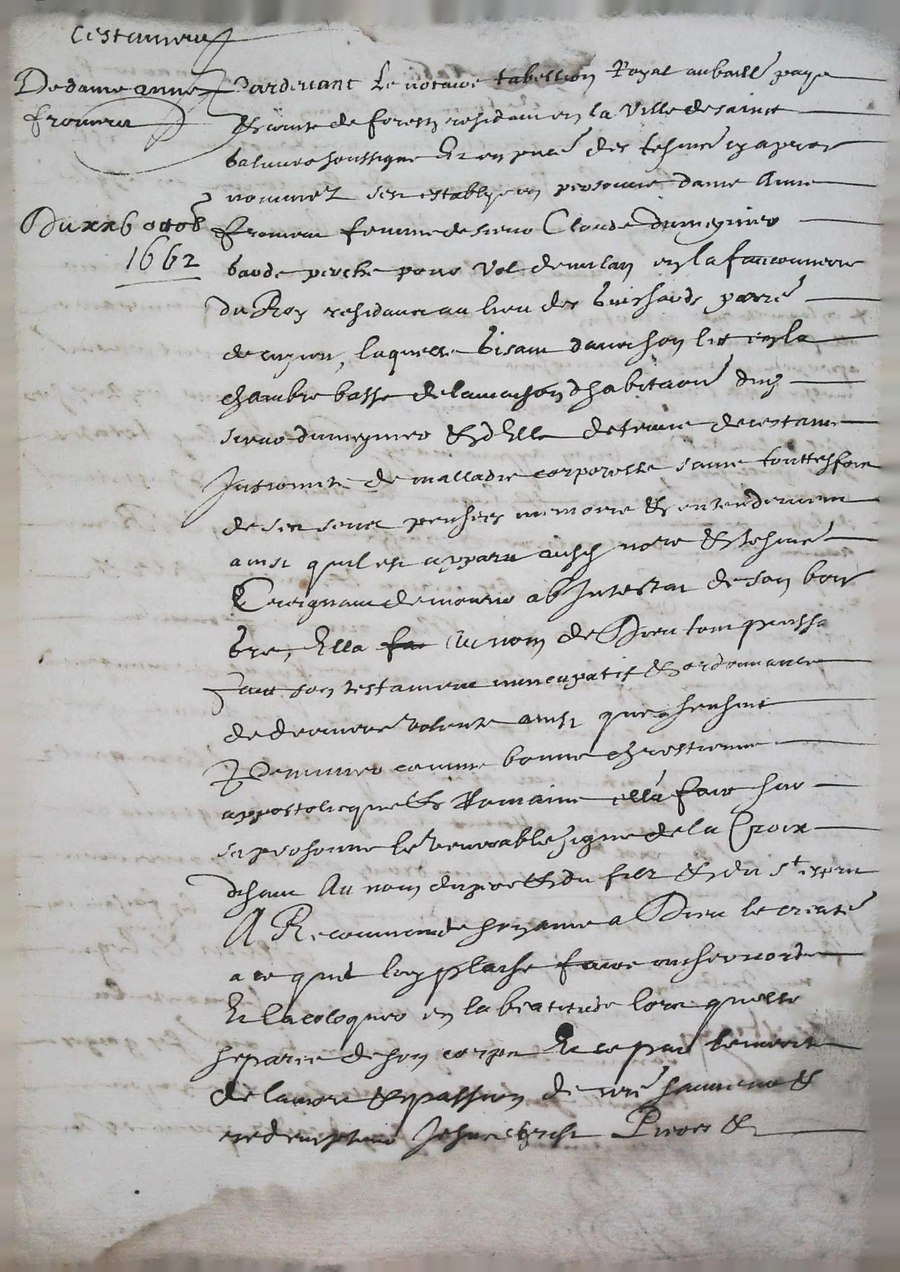 Testament
De dame anne
fromen
Du xx6 octob
1662
Pardevant Le notaire tabellion Royal au baille paye
& comte de forestz residant en la Ville de sainct
soussigne Et en pnce des tesmo cy apres
nommez sest establye en personne dame Anne
femme de sieur Claude dumeynier
garde perche pour Vol de millan en la fauconnerie
Du Roy residant au lieu des parre
de laquelle gisant dans son lit en la
chambre basse de la maison dhabitaon dud
sieur dumeynier & dElle detenue de certaine
Infirmite de malladie corporelle saine touttesfois
de ses sens pensees memoire & entendement
ainsi quil est apparu ausd nore & tesmo
Craignant de mourir ab Intestat de son bon
gre, Ella au nom de Dieu tout puissa
faict son testament nuncupatif & ordonnance
de derniere volonte ainsi que sensuict
Premier comme bonne chrestienne
appostolicque & Romaine ella faict sur
sa personne le venerable signe de la Croix
disant Au nom du pere & du filz & du st esprit
A Recommande son ame a Dieu le createur
a ce quil luy plaise faire misericorde
Et la coloquer en la beatitude lors quelle
separee de son corps Et ce par le merite
de la mort & passion de nre sauveur &
redempteur Jesus christ Prieres &